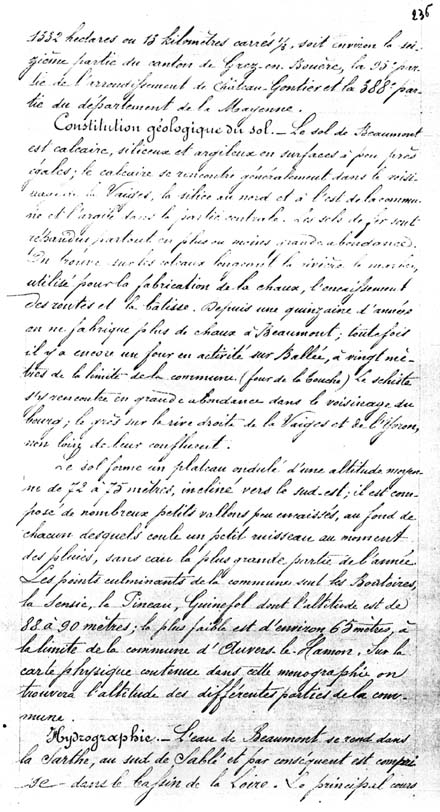 236
1332 hectares ou 13 kilomètres carrés ⅓, soit environ la sei-
zième partie du canton de Grez-en-Bouère, la 95e par-
tie de l'arrondissement de Château-Gontier et la 388e par-
tie du département de la Mayenne.
Constitution géologique du sol. — Le sol de Beaumont
est calcaire, siliceux et argileux en surfaces à peu près
égales; le calcaire se rencontre généralement dans le voisi-
nage de la Vaiges, la silice au nord et à l'est de la commu-
ne et l'argile dans la partie centrale. Les sels de fer sont
répandus partout en plus ou moins grande abondance.
On trouve sur les coteaux longeant la rivière le marbre,
utilisé pour la fabrication de la chaux, l'encaissement
des routes et la bâtisse. Depuis une quinzaine d'années
on ne fabrique plus de chaux à Beaumont; toutefois
il y a encore un four en activité sur Ballée, à vingt mè-
tres de la limite de la commune (four de la Touche) Le schiste
se rencontre en grande abondance dans le voisinage du
bourg; le grès sur la rive droite de la Vaiges et de l'
non loin de leur confluent.
Le sol forme un plateau ondulé d'une altitude moyen-
ne de 72 à 75 mètres, incliné vers le sud-est; il est com-
posé de nombreux petits vallons peu encaissés, au fond de
chacun desquels coule un petit ruisseau au moment
des pluies, sans eau la plus grande partie de l'année.
Les points culminants de la commune sont les Bouloires,
la Sensie, la Pineau, Guinefol dont l'altitude est de
88 à 90 mètres; la plus faible est d'environ 65 mètres, à
la limite de la commune d'Auvers-le-Hamon. Sur la
carte physique contenue dans cette monographie on
trouvera l'altitude des différentes parties de la com-
mune.
Hydrographie. — L'eau de Beaumont se rend dans
la Sarthe, au sud de Sablé et par conséquent est compri
se dans le bassin de la Loire. Le principal cours